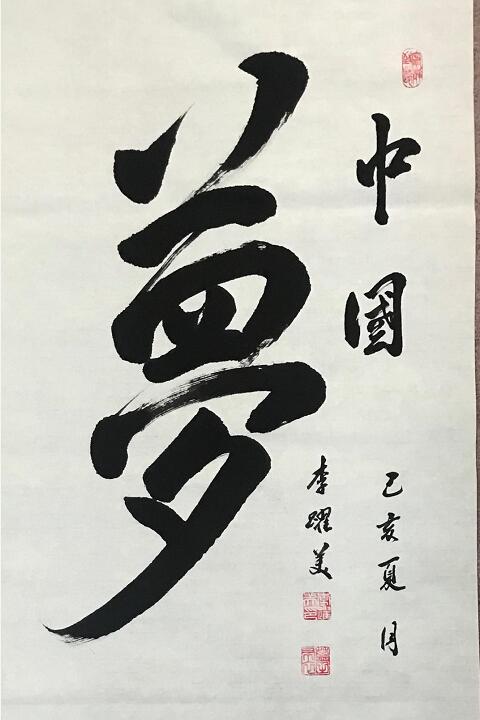 中國
夢
己亥夏月
李躍美